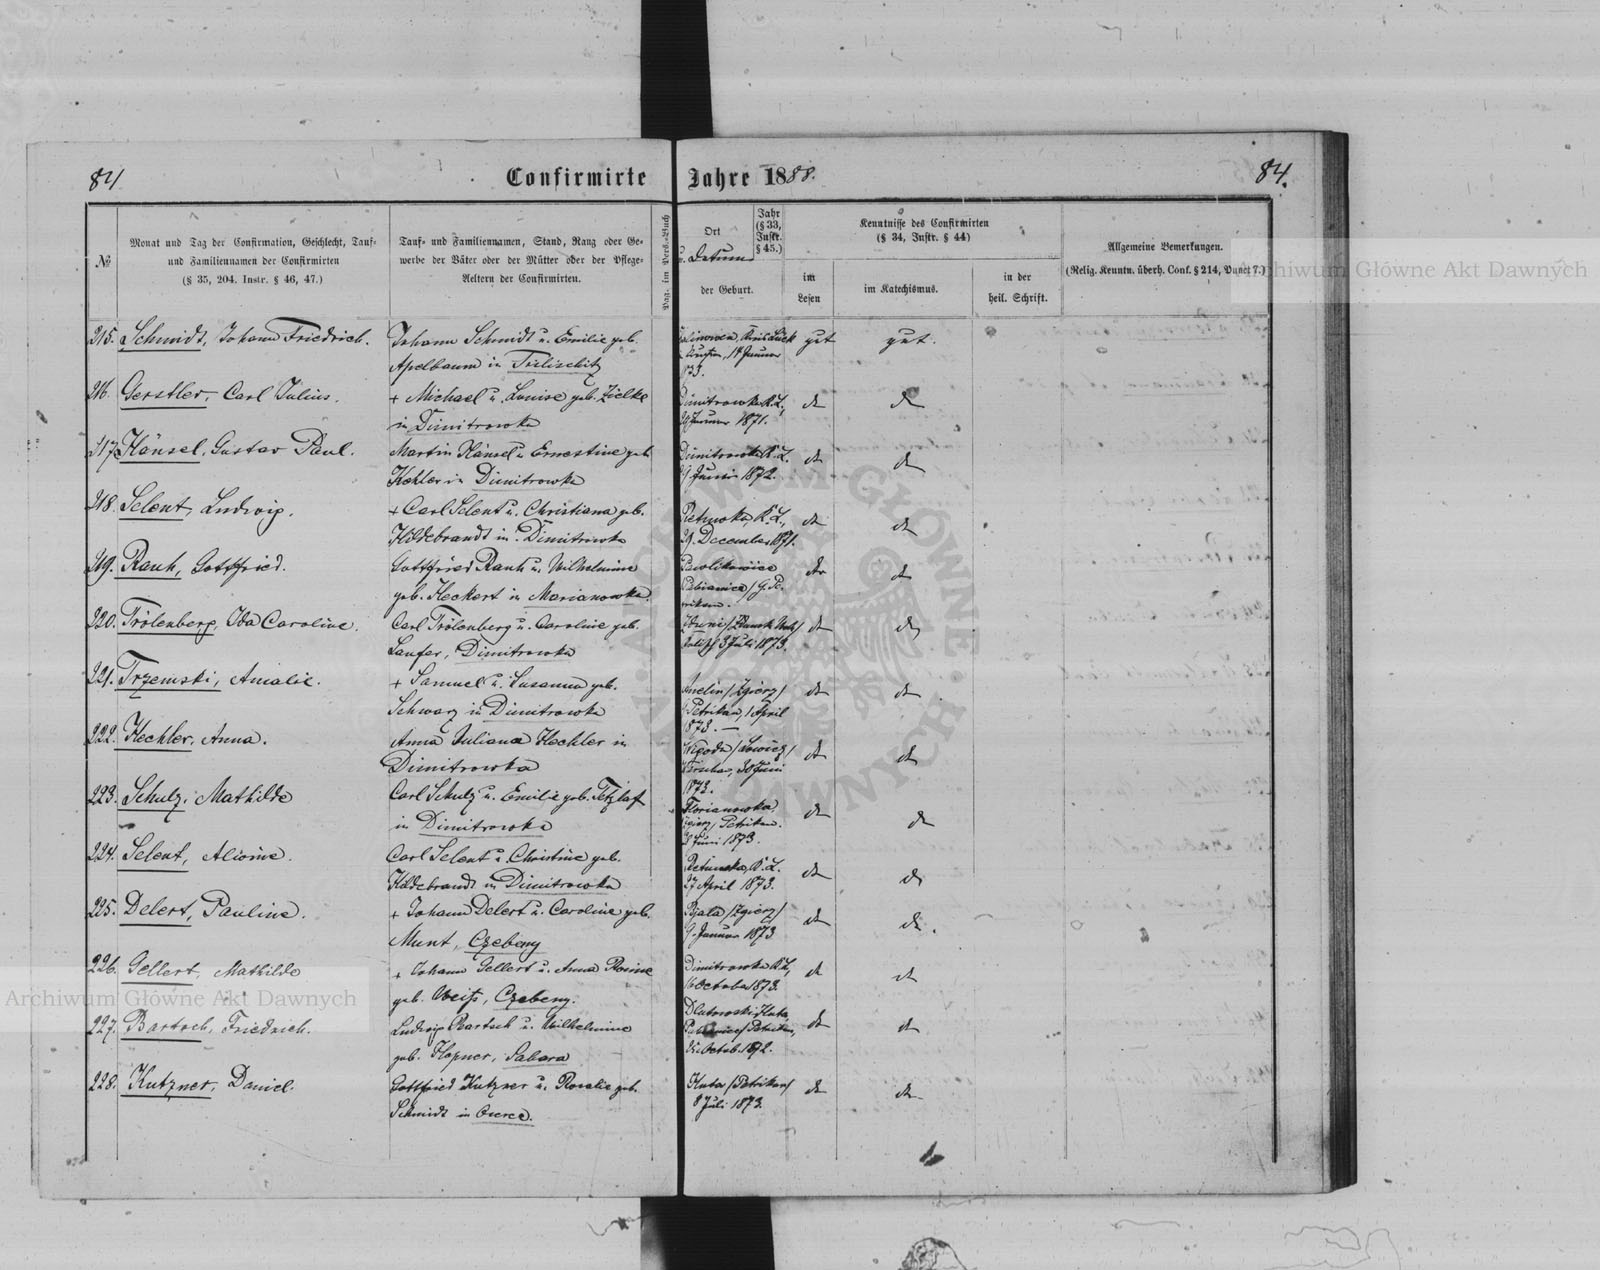 84
Confirmirte
Jahre 1888.
84.
№
Monat und Tag der Confirmation, Geschlecht, Tauf-
und Familiennamen der Confirmirten
(§ 35, 204. Instr. § 46, 47.)
Tauf- und Familiennamen, Stand, Rang oder Ge-
werbe der Väter oder der Mütter oder der Pflege-
Aeltern der Confirmirten.
Pag. im Pers.-Buch
Ort
u. Datum
der Geburt.
Jahr
(§ 33,
Instr.
§ 45.)
Kenntnisse des Confirmirten
(§ 34, Instr. § 44)
im
Lesen
im Katechismus.
in der
heil. Schrift.
Allgemeine Bemerkungen.
(Relig. Kenntn. überh. Conf. § 214, Punct 7.)
215. Schmidt, Johann Friedrich.
Johann Schmidt u. Emilie geb.
Apelbaum in
Kreis Luck
18 Januar
gut
gut.
216. Gerstler, Carl Julius.
+ Michael u. Louise geb. Zielke
in Dimitrowka
Dimitrowka K. L.,
Januar 1871.
do
do
217. Hänsel, Gustav Paul.
Martin Hänsel u Ernestine geb
Kehler in Dimitrowka
Dimitrowka K. L.
1872.
do
do
218. Selent, Ludwig.
+ Carl Selent u. Christiana geb.
Hildebrandt in Dimitrowka
K. L.,
29. December 1871.
do
do
219. Rauh, Gottfried.
Gottfried Rauh u. Wilhelmine
geb. Heckert in Marianowka.
Pabianice / G. Pe-
trikau.
do
do
220. Trölenberg, Ida Caroline.
Carl Trölenberg u. Caroline geb.
Laufer, Dimitrowka
Kalisch 3 Juli 1873.
do
do
221. Trzemski, Amalie.
+ Samuel u. Susanna geb.
Schwarz in Dimitrowka
/Zgierz/
Petrikau, 1 April
1873. —
do
do
222. Hechler, Anna.
Anna Juliana Hechler in
Dimitrowka
/Lowicz/
Warschau, 30 Juni
1873.
do
do
223. Schulz, Mathilde
Carl Schulz u. Emilie geb. Tetzlaf
in Dimitrowka
Florianowka,
Zgierz, Petrikau.
Juni 1873.
do
do
224. Selent,
Carl Selent u. Christine geb.
Hildebrandt in Dimitrowka
K. L.
27 April 1873.
do
do
225. Delert, Pauline.
+ Johann Delert u. Caroline geb.
Munt, Czebeny
Bjala /Zgierz/
9. Januar 1873
do
do.
226. Gellert, Mathilde
+ Johann Gellert u. Anna Rosine
geb. Weiß, Czebeny.
Dimitrowka K. L,
16 October 1873.
do
do
227. Bartsch, Friedrich.
Ludwig Bartsch u. Wilhelmine
geb. Hepner, Sabara
Dlutowski Huta,
Pabianice/ Petrikau,
Octob. 1872.
do
do
228. Kutzner, Daniel.
Gottfried Kutzner u. Rosalie geb.
Schmidt in
Huta /Petrikau/
8 Juli 1873.
do
do
Archiwum Główne Akt Dawnych
Archiwum Główne Akt Dawnych
ARCHIWUM GŁÓWNE AKT DAWNYCH